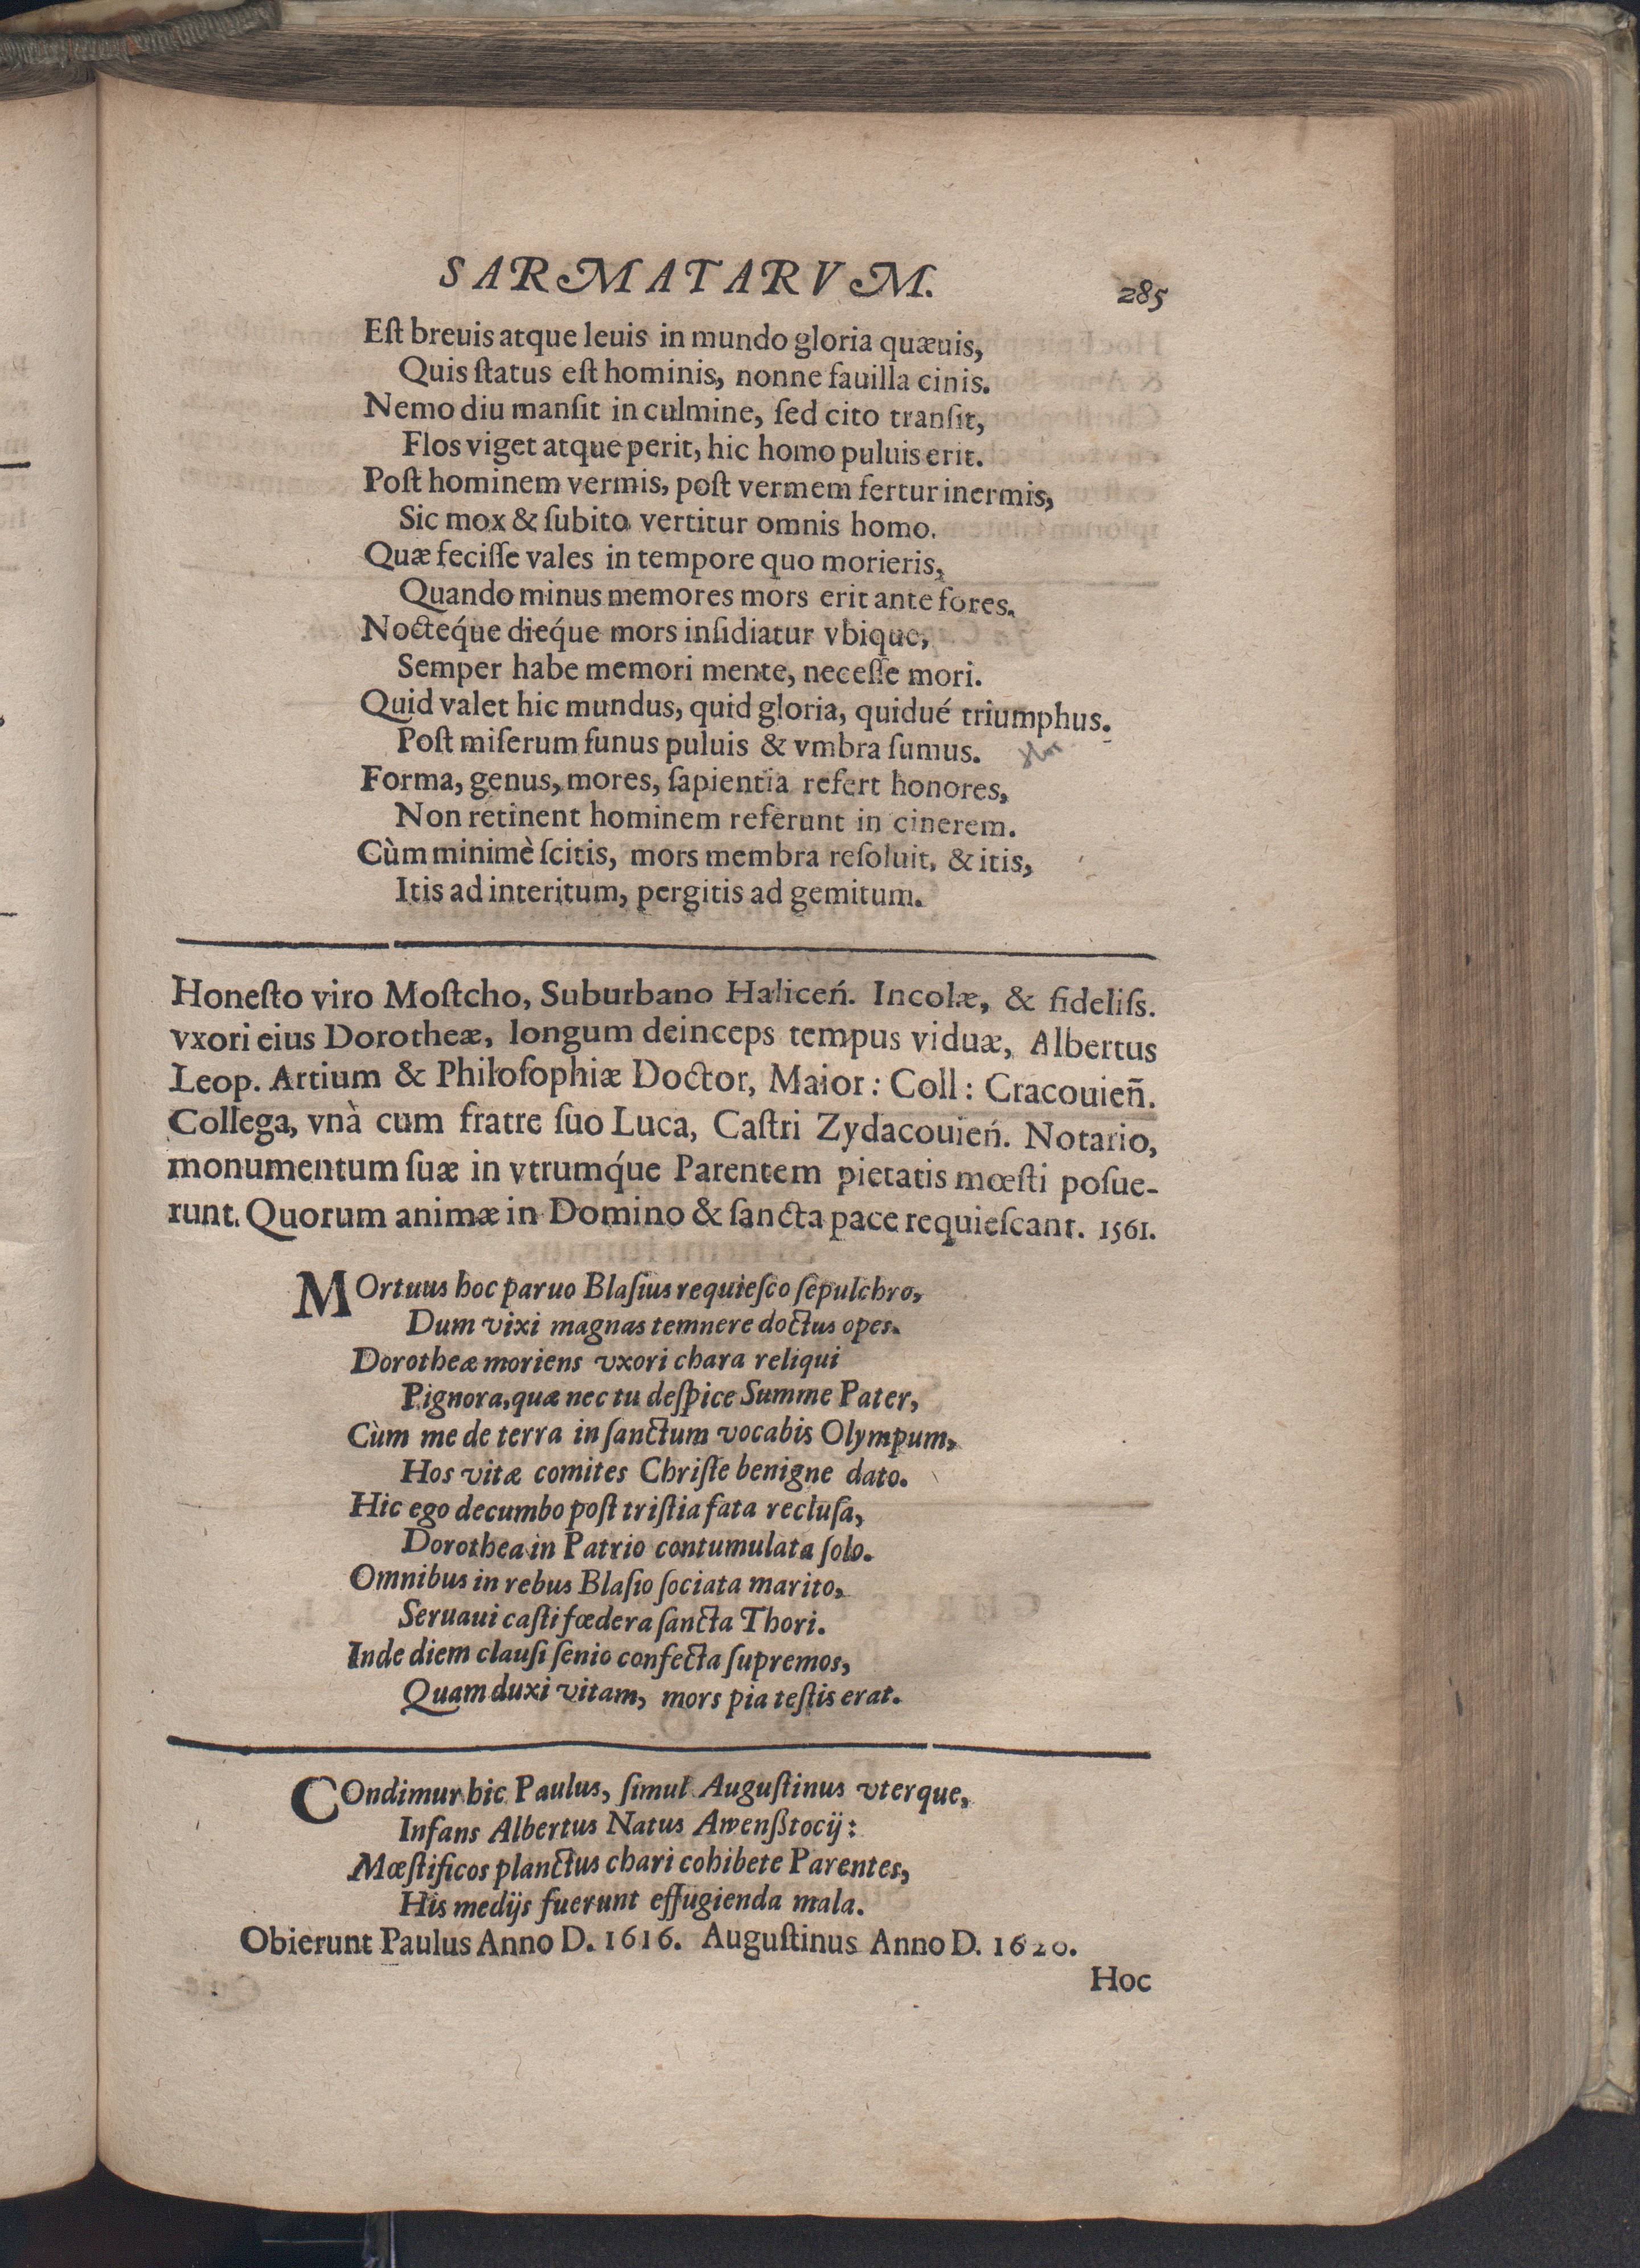 SARMATARVM.
285
Eſt breuis atque leuis in mundo gloria quæuis,
Quis ſtatus eſt hominis, nonne fauilla cinis.
Nemo diu manſit in culmine, ſed cito tranſit,
Flos viget atque perit, hic homo puluis erit.
Poſt hominem vermis, poſt vermem fertur inermis,
Sic mox & ſubito vertitur omnis homo.
Quæ feciſſe vales in tempore quo morieris,
Quando minus memores mors erit ante fores.
Nocteq́ue dieq́ue mors inſidiatur vbique,
Semper habe memori mente, neceſſe mori.
Quid valet hic mundus, quid gloria, quidué triumphus.
Poſt miſerum funus puluis & vmbra ſumus.
Forma, genus, mores, ſapientia refert honores,
Non retinent hominem referunt in cinerem.
Cùm minimè ſcitis, mors membra reſoluit, & itis,
Itis ad interitum, pergitis ad gemitum.
Honeſto viro Moſtcho, Suburbano Haliceń. Incolæ, & fideliſs.
vxori eius Dorotheæ, longum deinceps tempus viduæ, Albertus
Leop. Artium & Philoſophiæ Doctor, Maior: Coll: Cracouien̄.
Collega, vnà cum fratre ſuo Luca, Caſtri Zydacouień. Notario,
monumentum ſuæ in vtrumq́ue Parentem pietatis mœſti poſue-
runt. Quorum animæ in Domino & ſancta pace requieſcant. 1561.
MOrtuus hoc paruo Blaſius requieſco ſepulchro,
Dum vixi magnas temnere doctus opes.
Dorotheæ moriens vxori chara reliqui
Pignora, quæ nec tu deſpice Summe Pater,
Cùm me de terra in ſanctum vocabis Olympum,
Hos vitæ comites Chriſte benigne dato.
Hic ego decumbo poſt triſtia fata recluſa,
Dorothea in Patrio contumulata ſolo.
Omnibus in rebus Blaſio ſociata marito,
Seruaui caſti fœdera ſancta Thori.
Inde diem clauſi ſenio confecta ſupremos,
Quam duxi vitam, mors pia teſtis erat.
COndimur hic Paulus, ſimul Auguſtinus vterque,
Infans Albertus Natus Awenßtocij:
Mœſtificos planctus chari cohibete Parentes,
His medijs fuerunt effugienda mala.
Obierunt Paulus Anno D. 1616. Auguſtinus Anno D. 1620.
Hoc